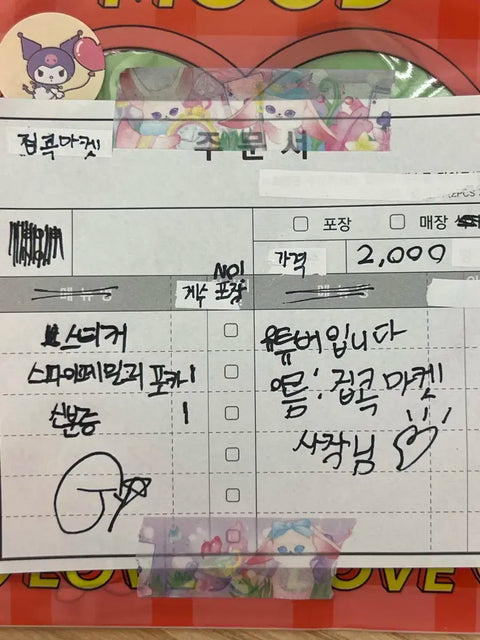 MOOD
집콕마켓
주문서
(2PCS
포장 매장
가격 2,000
메뉴명 NO! 개수 포장 메뉴명
스티커
스파이패밀리 포카 1
신분증 1
유튜버입니다
이름: 집콕 마켓
사장님
LOVE LOVE